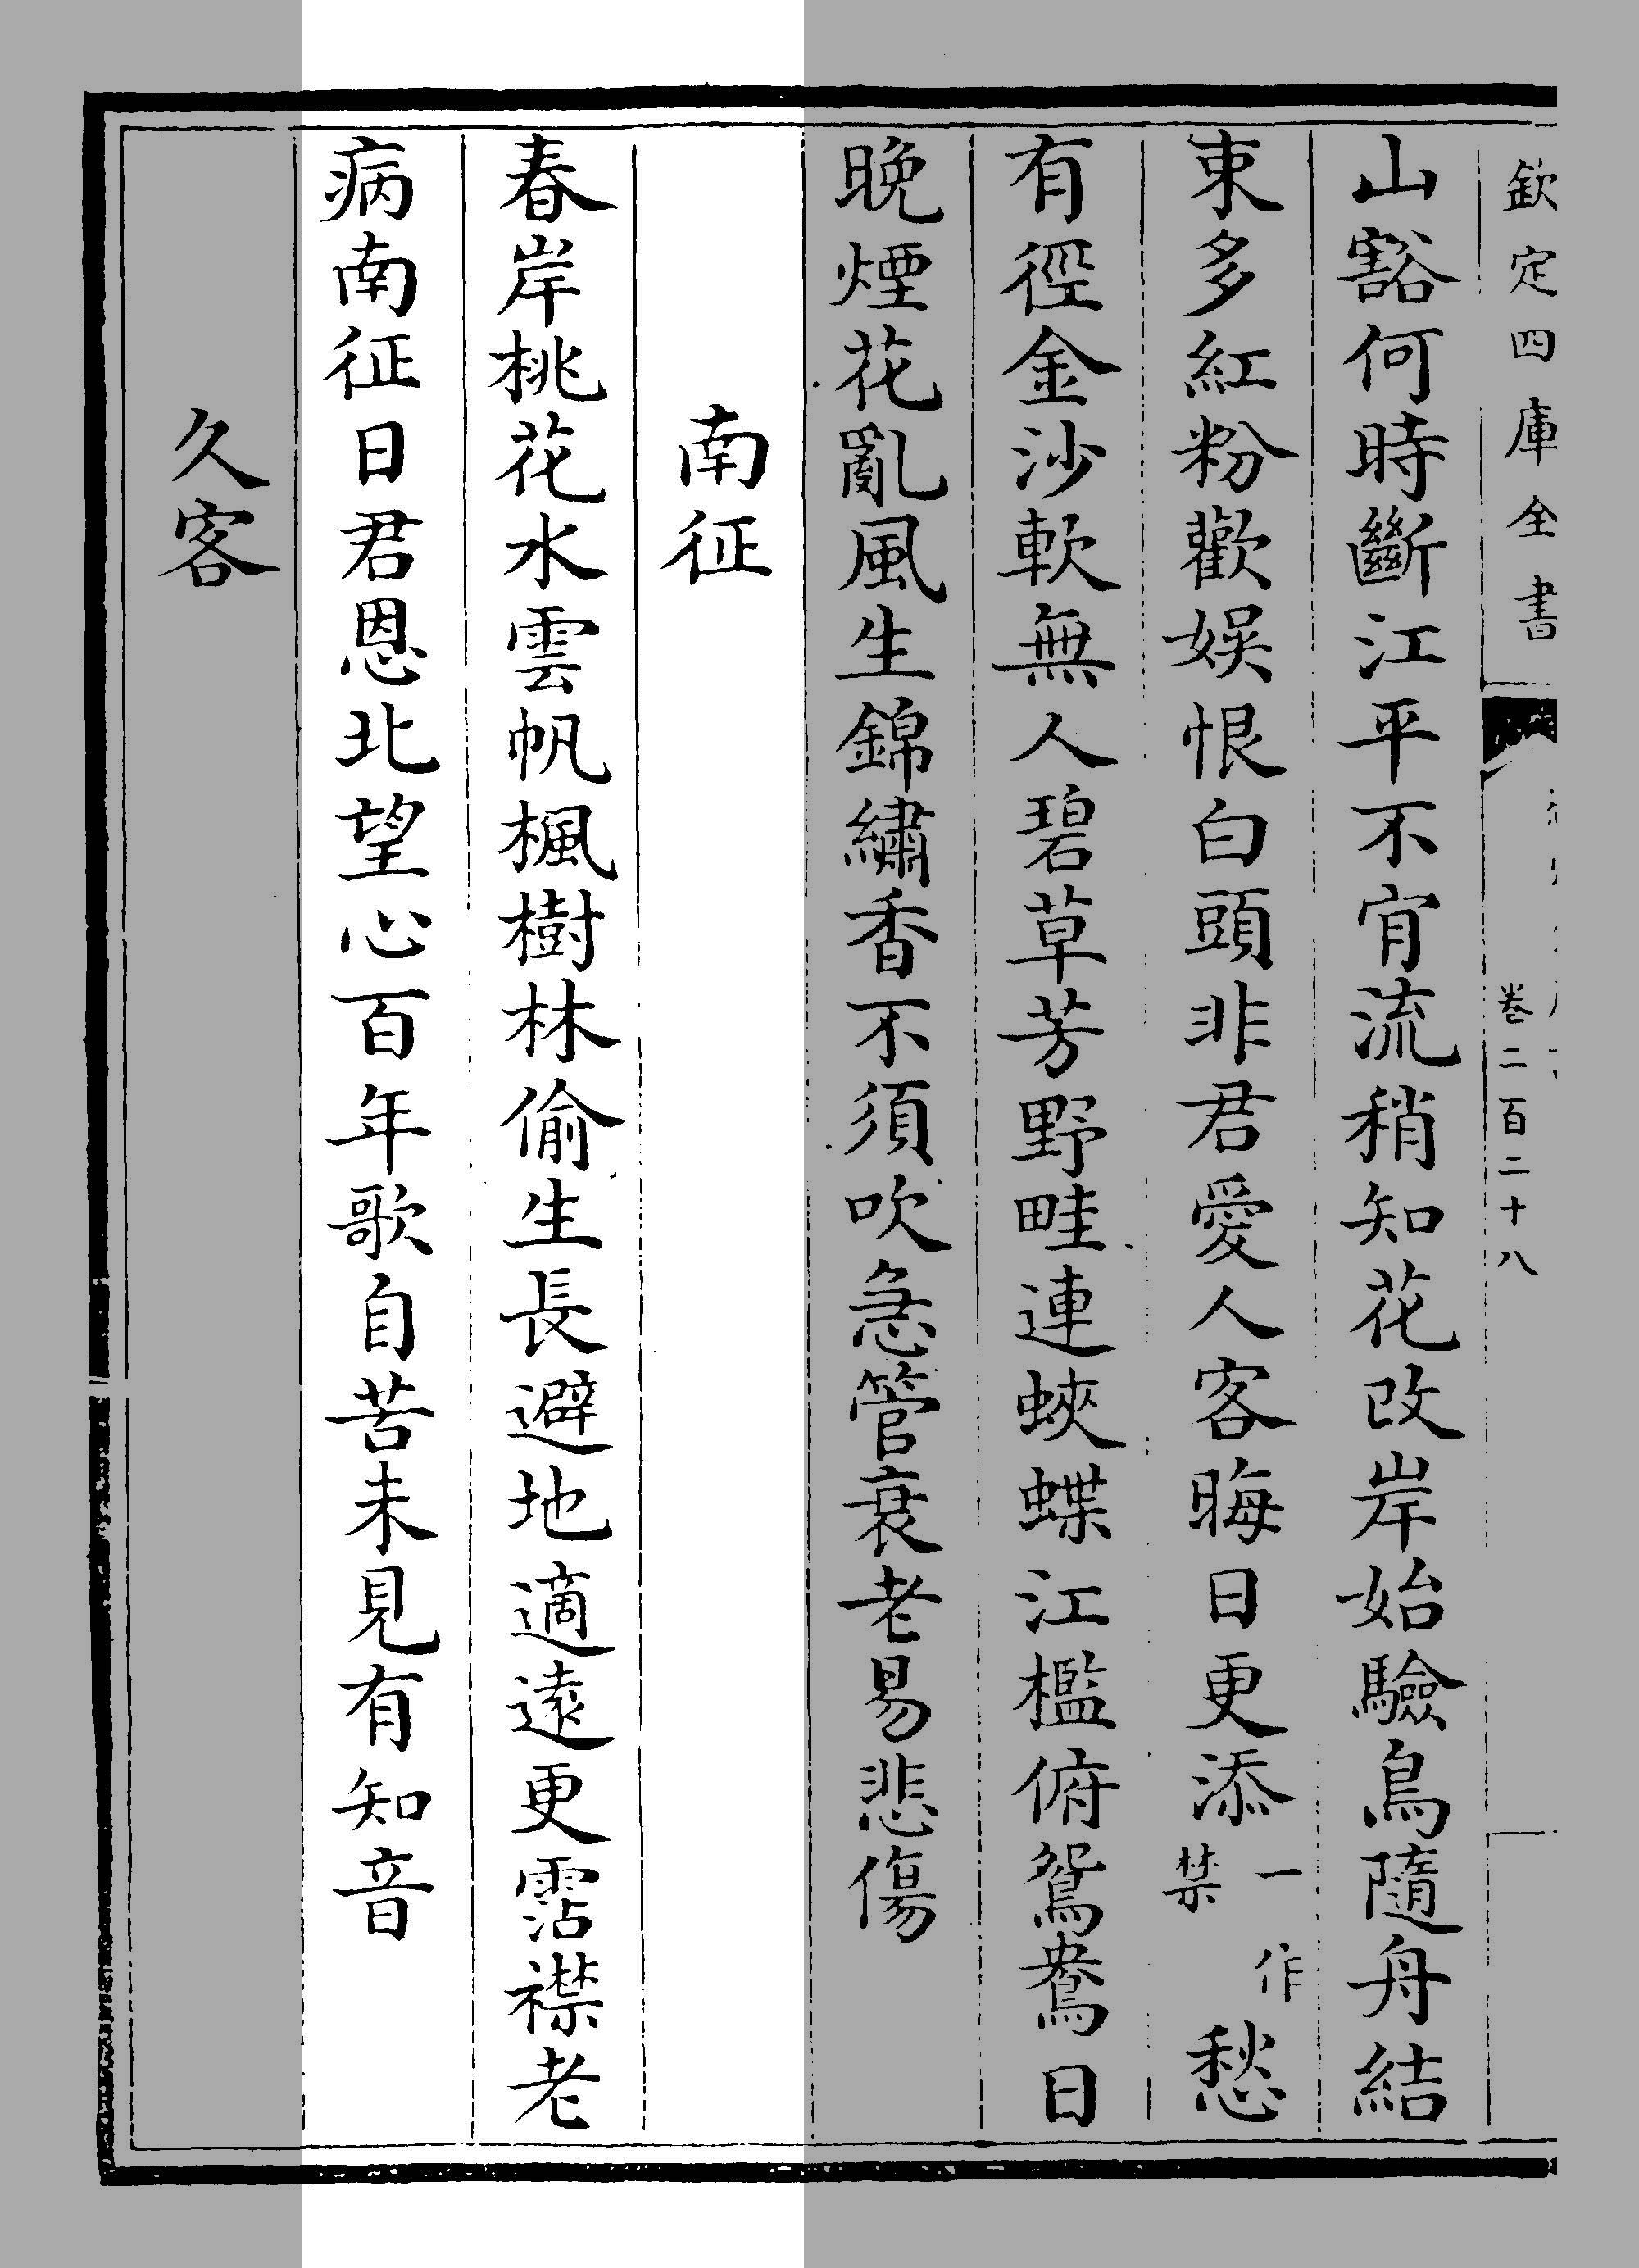 欽定四庫全書
卷二百二十八
山豁何時斷江平不肎流稍知花改岸始驗鳥隨舟結
束多紅粉歡娛恨白頭非君愛人客晦日更添一作禁愁
有徑金沙軟無人碧草芳野畦連蛺蝶江檻俯鴛鴦日
晚煙花亂風生錦繡香不須吹急管衰老易悲傷
南征
春岸桃花水雲帆楓樹林偷生長避地適遠更霑襟老
病南征日君恩北望心百年歌自苦未見有知音
久客